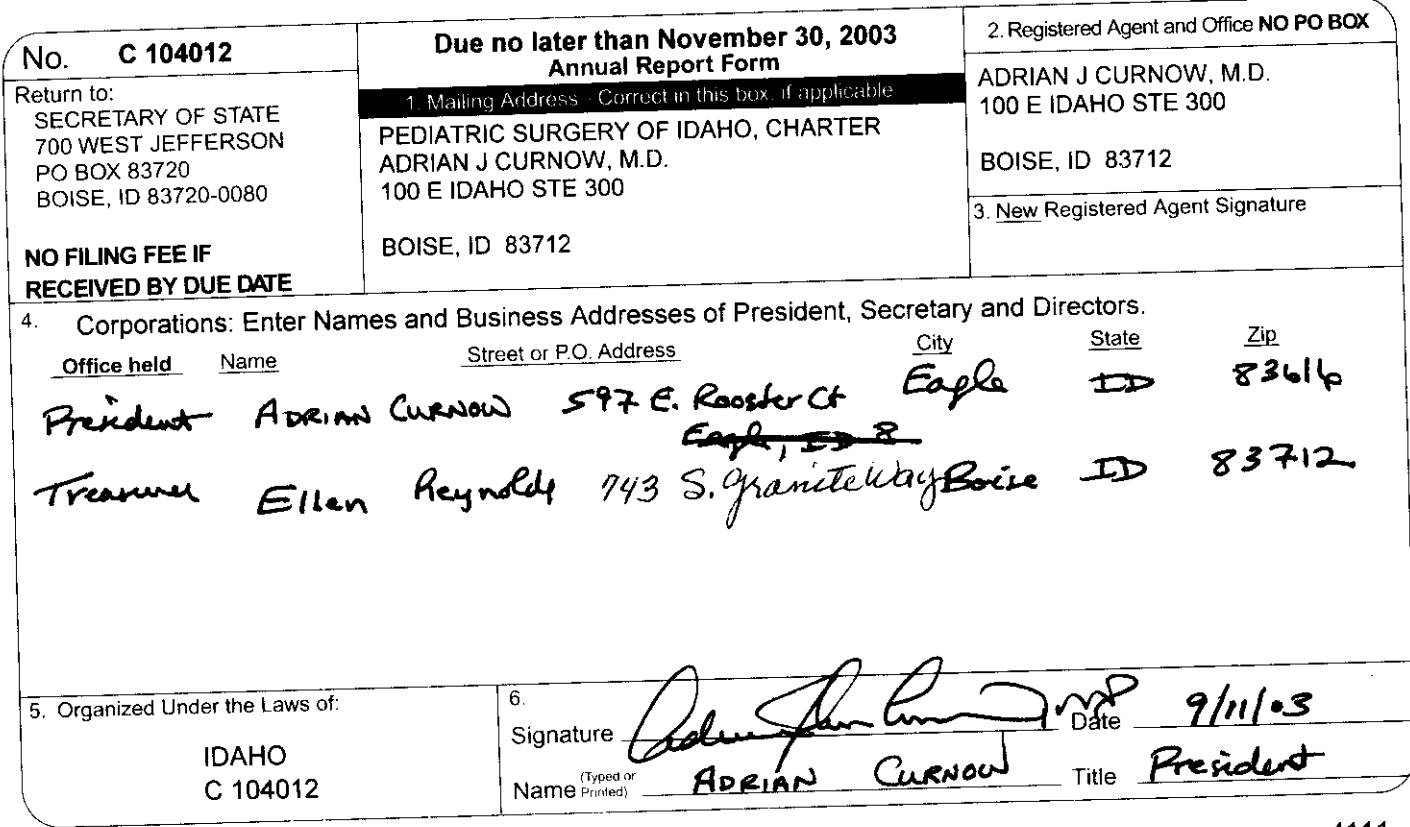 No. C 104012
Return to:
SECRETARY OF STATE
700 WEST JEFFERSON
PO BOX 83720
BOISE, ID 83720-0080
NO FILING FEE IF
RECEIVED BY DUE DATE
Due no later than November 30, 2003
Annual Report Form
1. Mailing Address - Correct in this box, if applicable
PEDIATRIC SURGERY OF IDAHO, CHARTER
ADRIAN J CURNOW, M.D.
100 E IDAHO STE 300
BOISE, ID 83712
2. Registered Agent and Office NO PO BOX
ADRIAN J CURNOW, M.D.
100 E IDAHO STE 300
BOISE, ID 83712
3. New Registered Agent Signature
4. Corporations: Enter Names and Business Addresses of President, Secretary and Directors.
Office held Name Street or P.O. Address City State Zip
President ADRIAN CURNOW 597 E. Rooster Ct Eagle ID 83616
Eagle, ID 8
Treasurer Ellen Reynolds 743 S. Granite Way Boise ID 83712
5. Organized Under the Laws of:
IDAHO
C 104012
6.
Signature MD Date 9/11/03
Name (Typed or Printed) ADRIAN CURNOW Title President